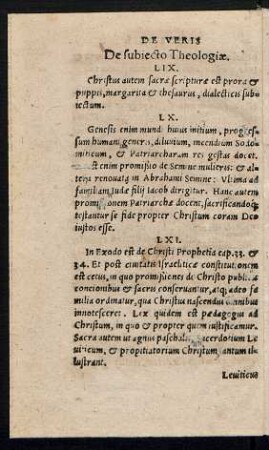 DE VERIS
De subiecto Theologiæ.
LIX.
Christus autem sacræ scripturæ est prora &
puppis, margarita & thesaurus, dialecticis sub-
iectum.
LX.
Genesis enim mundi huius initium, progres-
sum humani generis, diluuium, incendium Sodo-
miticum, & Patriarcharum res gestas docet.
Est enim promissio de Semine mulieris: & al-
tera renouata in Abrahami Semine: Vltima ad
familiam Iudæ filij Iacob dirigitur. Hanc autem
promissionem Patriarchæ docent, sacrificandoq;
testantur se fide propter Christum coram Deo
iustos esse.
LXI.
In Exodo est de Christi Prophetia cap. 33. &
34. Et post ciuitatis Israeliticæ constitutionem
est cœtus, in quo promissiones de Christo publicis
concionibus & sacris conseruantur, atq; adeo fa-
milia ordinatur, qua Christus nascendus omnibus
innotesceret. Lex quidem est pædagogus ad
Christum, in quo & propter quem iustificamur.
Sacra autem ut agnus paschalis, sacerdotium Le-
uiticum, & propitiatorium Christum tantum il-
lustrant.
Leuiticus